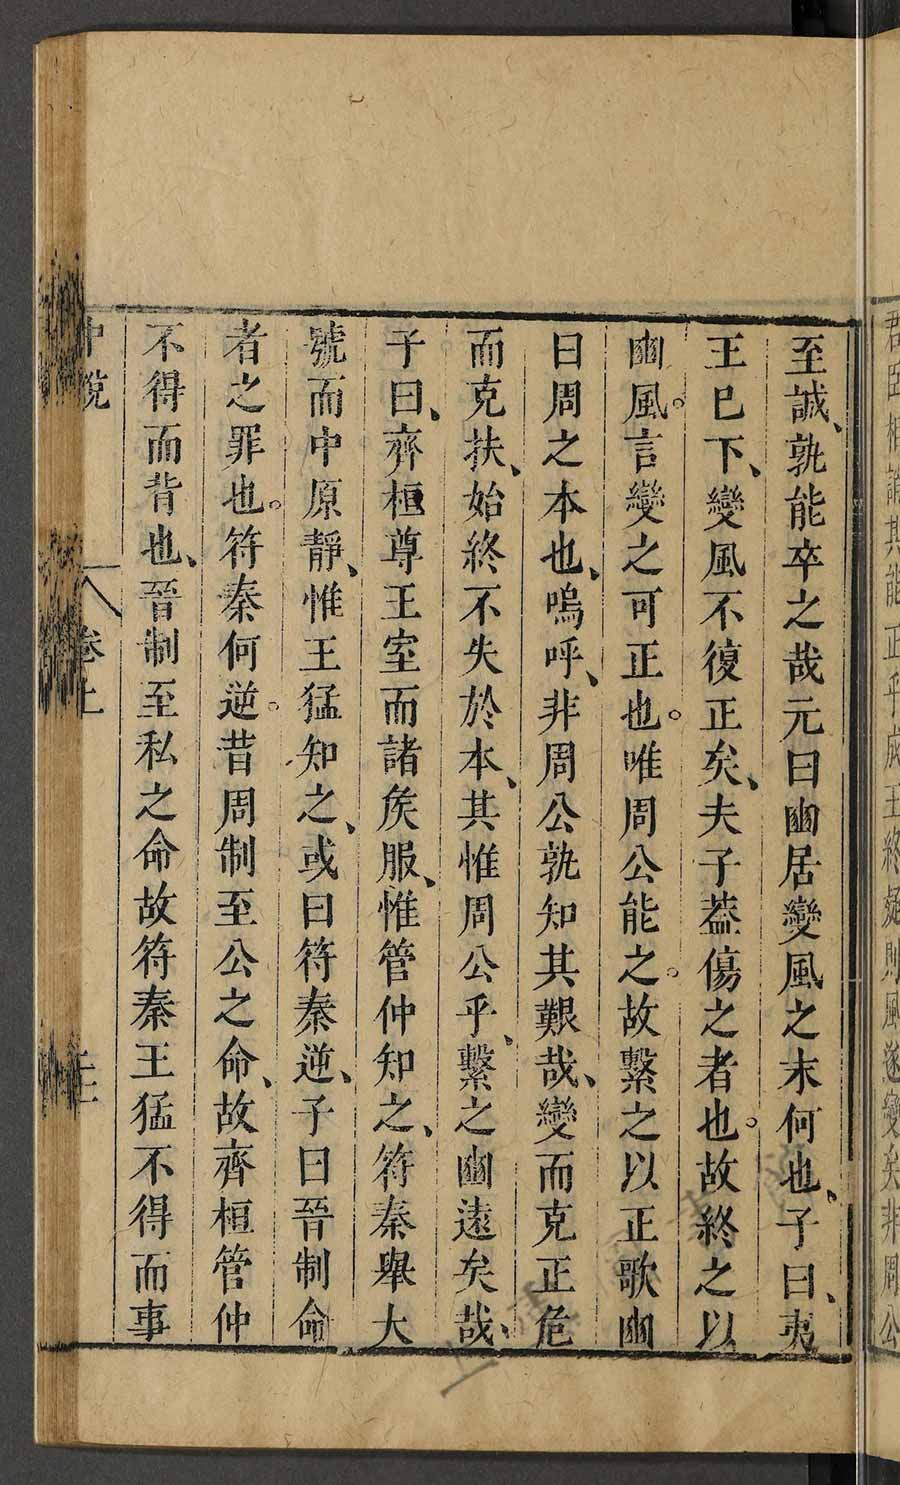 君臣相誚其能正乎成王終疑則風遂變矣非周公
至誠、孰能卒之哉元曰豳居變風之末何也、子曰、夷
王已下、變風不復正矣、夫子葢傷之者也。故終之以
豳風。言變之可正也。唯周公能之。故繫之以正歌豳
曰周之本也、嗚呼、非周公孰知其艱哉、變而克正危
而克扶、始終不失於本、其惟周公乎、繫之豳遠矣哉、
子曰、齊桓尊王室而諸矦服、惟管仲知之、符秦舉大
號而中原靜、惟王猛知之、或曰符秦逆、子曰晉制命
者之罪也。符秦何逆。昔周制至公之命、故齊桓管仲
不得而背也、晉制至私之命故符秦王猛不得而事
中說 卷上